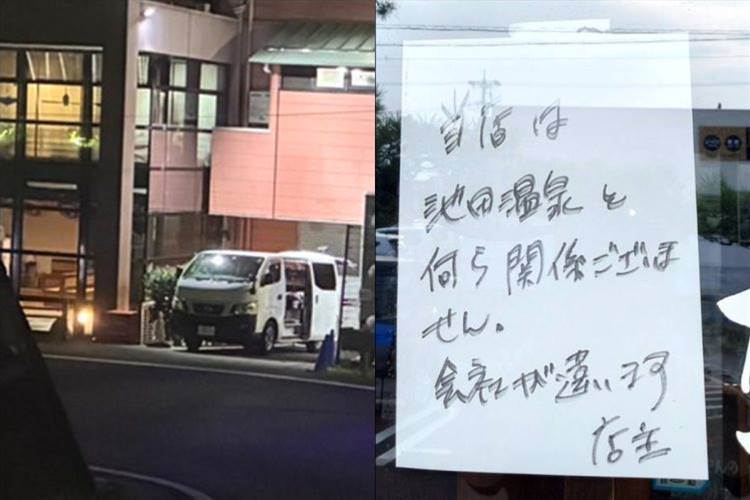 当店は
池田温泉と
何ら関係ございま
せん。
会社が違います
店主